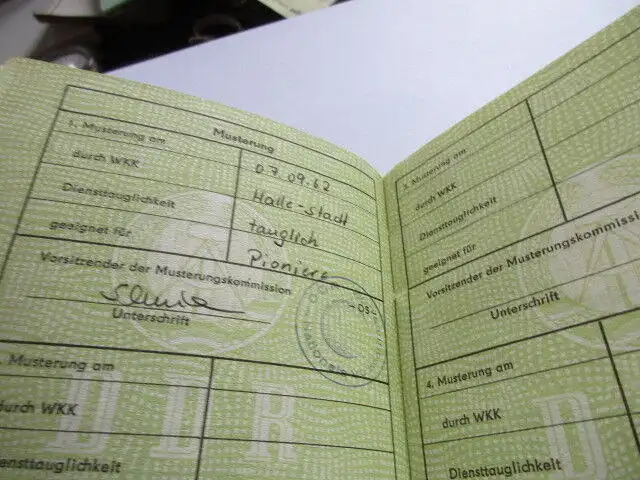 Musterung
1. Musterung am 07.09.62
durch WKK Halle-Stadt
Diensttauglichkeit tauglich
geeignet für Pioniere
Vorsitzender der Musterungskommission
Unterschrift
-03-
Musterung am
durch WKK
Diensttauglichkeit
DDR
Musterung am
durch WKK
Diensttauglichkeit
geeignet für
Vorsitzender der Musterungskommission
Unterschrift
4. Musterung am
durch WKK
Diensttauglichkeit
D